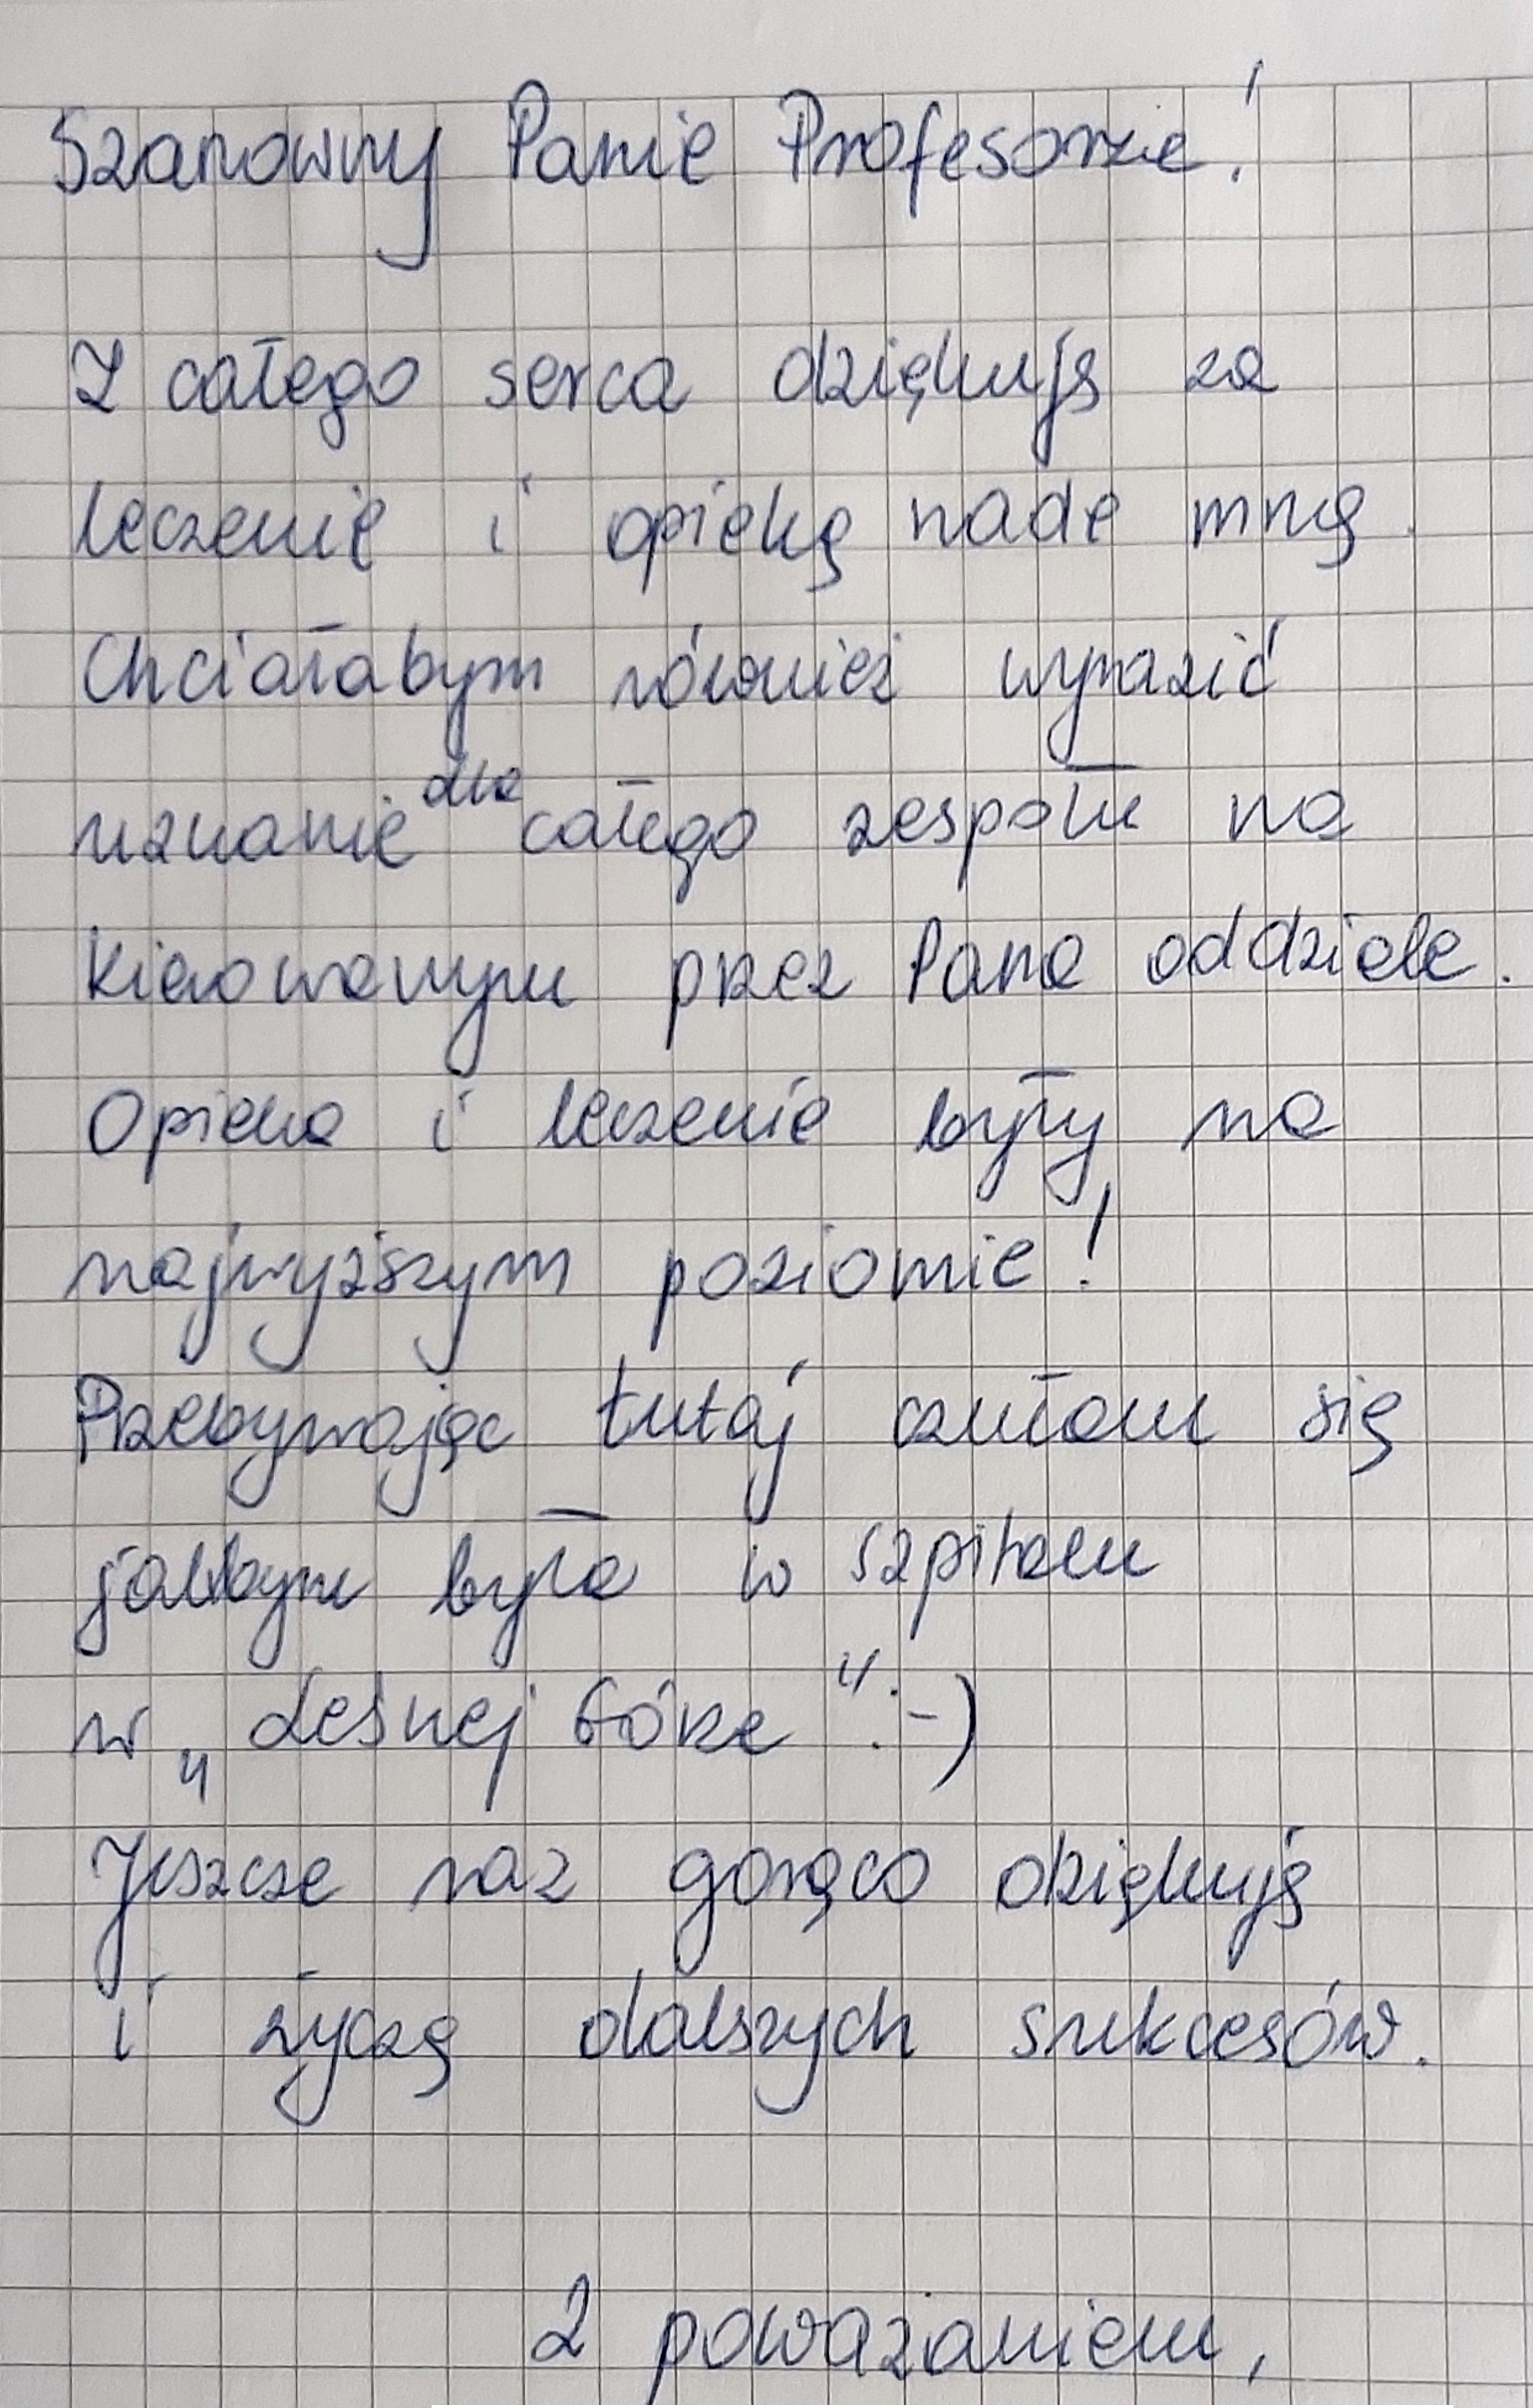 Szanowny Panie Profesorze!
Z całego serca dziękuję za
leczenie i opiekę nade mną.
Chciałabym również wyrazić
uznanie dla całego zespołu na
kierowanym przez Pana oddziele.
Opieka i leczenie były na
najwyższym poziomie!
Przebywając tutaj czułam się
jakbym była w szpitalu
w „Leśnej Górze" :-)
Jeszcze raz gorąco dziękuję
i życzę dalszych sukcesów.
Z poważaniem,